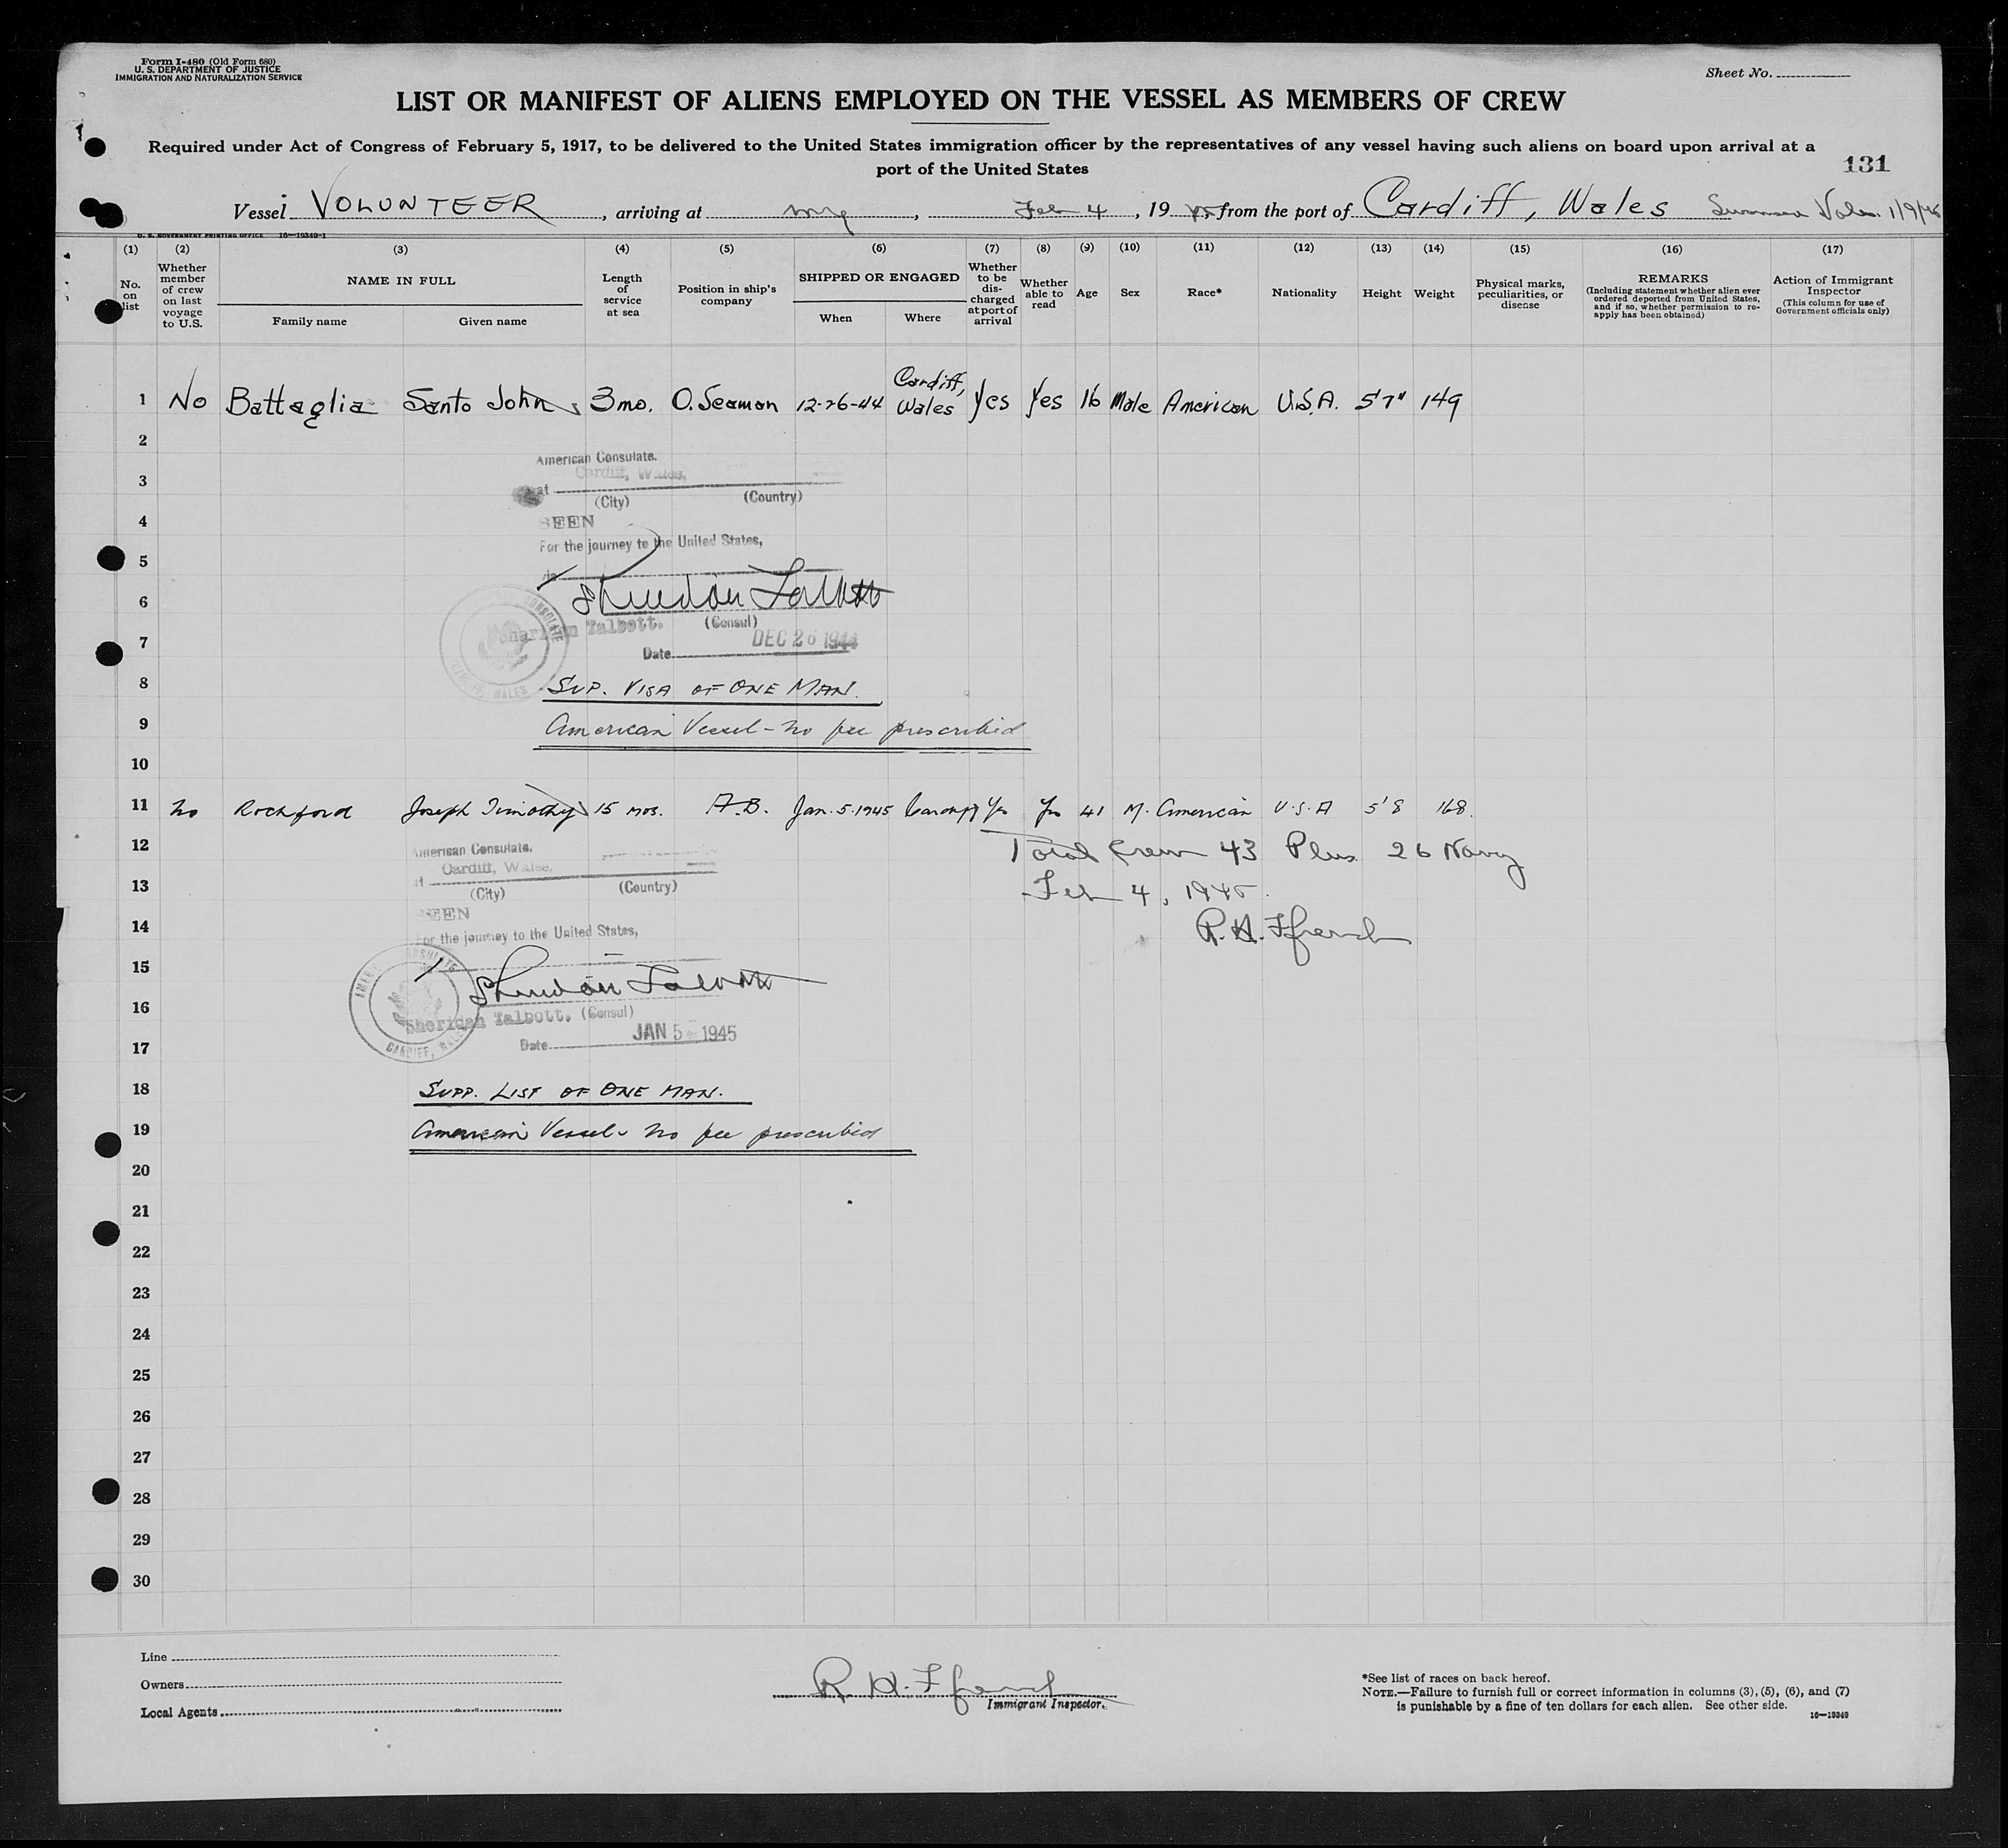 Form I-480 (Old Form 680)
U. S. DEPARTMENT OF JUSTICE
IMMIGRATION AND NATURALIZATION SERVICE
Sheet No.
LIST OR MANIFEST OF ALIENS EMPLOYED ON THE VESSEL AS MEMBERS OF CREW
Required under Act of Congress of February 5, 1917, to be delivered to the United States immigration officer by the representatives of any vessel having such aliens on board upon arrival at a
port of the United States
131
Vessel VOLUNTEER, arriving at, Feb 4, 19 from the port of Cardiff, Wales Swansea Wales 1/9/45
U. S. GOVERNMENT PRINTING OFFICE 16—19349-1
(1) (2) (3) (4) (5) (6) (7) (8) (9) (10) (11) (12) (13) (14) (15) (16) (17)
No. on list
Whether member of crew on last voyage to U.S.
NAME IN FULL
Family name
Given name
Length of service at sea
Position in ship's company
SHIPPED OR ENGAGED
When
Where
Whether to be discharged at port of arrival
Whether able to read
Age
Sex
Race*
Nationality
Height
Weight
Physical marks, peculiarities, or disease
REMARKS
(Including statement whether alien ever ordered deported from United States, and if so, whether permission to re-apply has been obtained)
Action of Immigrant Inspector
(This column for use of Government officials only)
1 No Battaglia Santo John 3 mo. O. Seaman 12-26-44 Cardiff, Wales Yes Yes 16 Male American U.S.A. 5'7" 149
2
American Consulate.
3
Cardiff, Wales.
at
(City) (Country)
4
SEEN
For the journey to the United States,
5
6
Sheridan Talbott
(Consul)
Sheridan Talbott.
7
Date DEC 26 1944
8
SUP. VISA OF ONE MAN.
9
American Vessel - no fee prescribed
10
11 No Rochford Joseph Timothy 15 mos. A.B. Jan. 5. 1945 Cardiff Yes Yes 41 M. American U.S.A 5'8 168.
12
American Consulate.
Total Crew 43 Plus 26 Navy
Cardiff, Wales.
13
at
Feb 4, 1945.
(City) (Country)
SEEN
14
R. H. Ffrench
For the journey to the United States,
15
Sheridan Talbott
16
Sheridan Talbott. (Consul)
AMERICAN CONSULATE
CARDIFF, WALES
17
Date JAN 5 1945
18
SUPP. LIST OF ONE MAN.
19
American Vessel - no fee prescribed
20
21
22
23
24
25
26
27
28
29
30
Line
Owners
Local Agents
R. H. Ffrench
Immigrant Inspector.
*See list of races on back hereof.
NOTE.—Failure to furnish full or correct information in columns (3), (5), (6), and (7)
is punishable by a fine of ten dollars for each alien. See other side.
16—19349